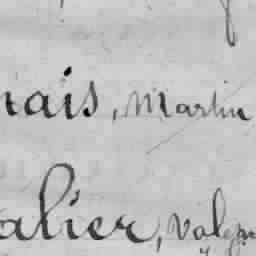 nais, Martin
alier, Valen